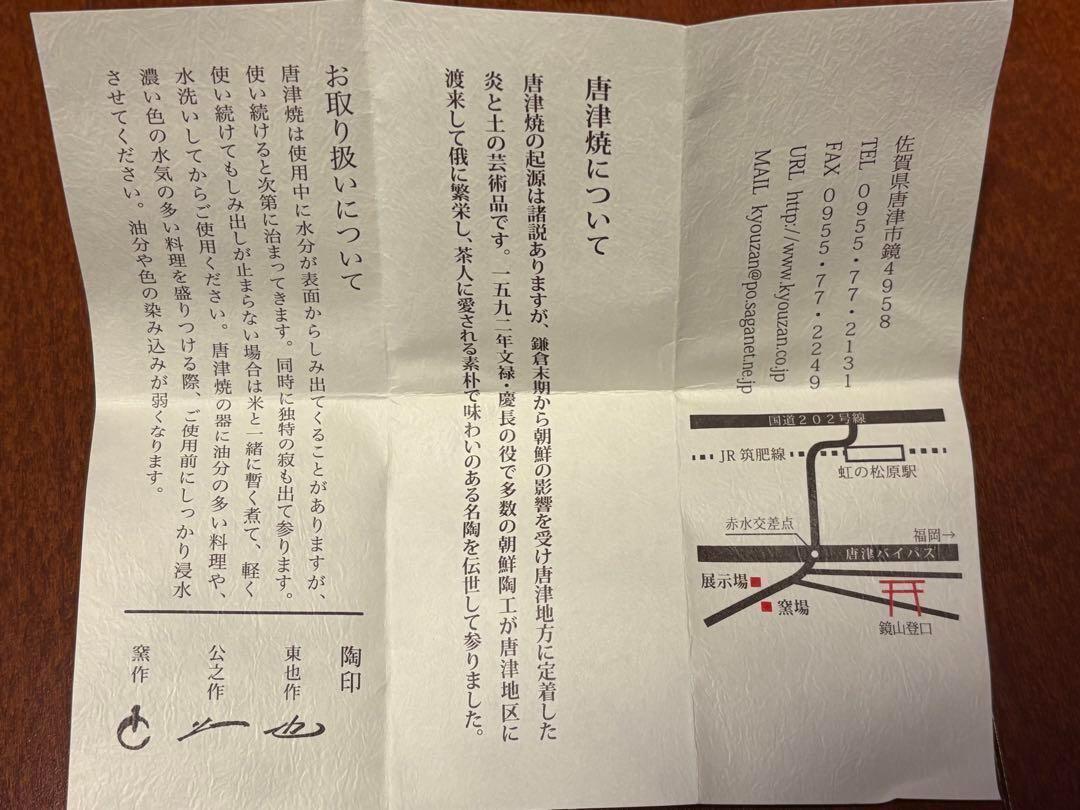 佐賀県唐津市鏡4958
TEL 0955・77・2131
FAX 0955・77・2249
URL http://www.kyouzan.co.jp
MAIL kyouzan@po.saganet.ne.jp
国道202号線
JR筑肥線
虹の松原駅
赤水交差点
福岡→
唐津バイパス
展示場
窯場
鏡山登口
唐津焼について
唐津焼の起源は諸説ありますが、鎌倉末期から朝鮮の影響を受け唐津地方に定着した
炎と土の芸術品です。一五九二年文禄・慶長の役で多数の朝鮮陶工が唐津地区に
渡来して俄に繁栄し、茶人に愛される素朴で味わいのある名陶を伝世して参りました。
お取り扱いについて
唐津焼は使用中に水分が表面からしみ出てくることがありますが、
使い続けると次第に治まってきます。同時に独特の寂も出て参ります。
使い続けてもしみ出しが止まらない場合は米と一緒に暫く煮て、軽く
水洗いしてからご使用ください。唐津焼の器に油分の多い料理や、
濃い色の水気の多い料理を盛りつける際、ご使用前にしっかり浸水
させてください。油分や色の染み込みが弱くなります。
陶印
東也作
公之作
窯作